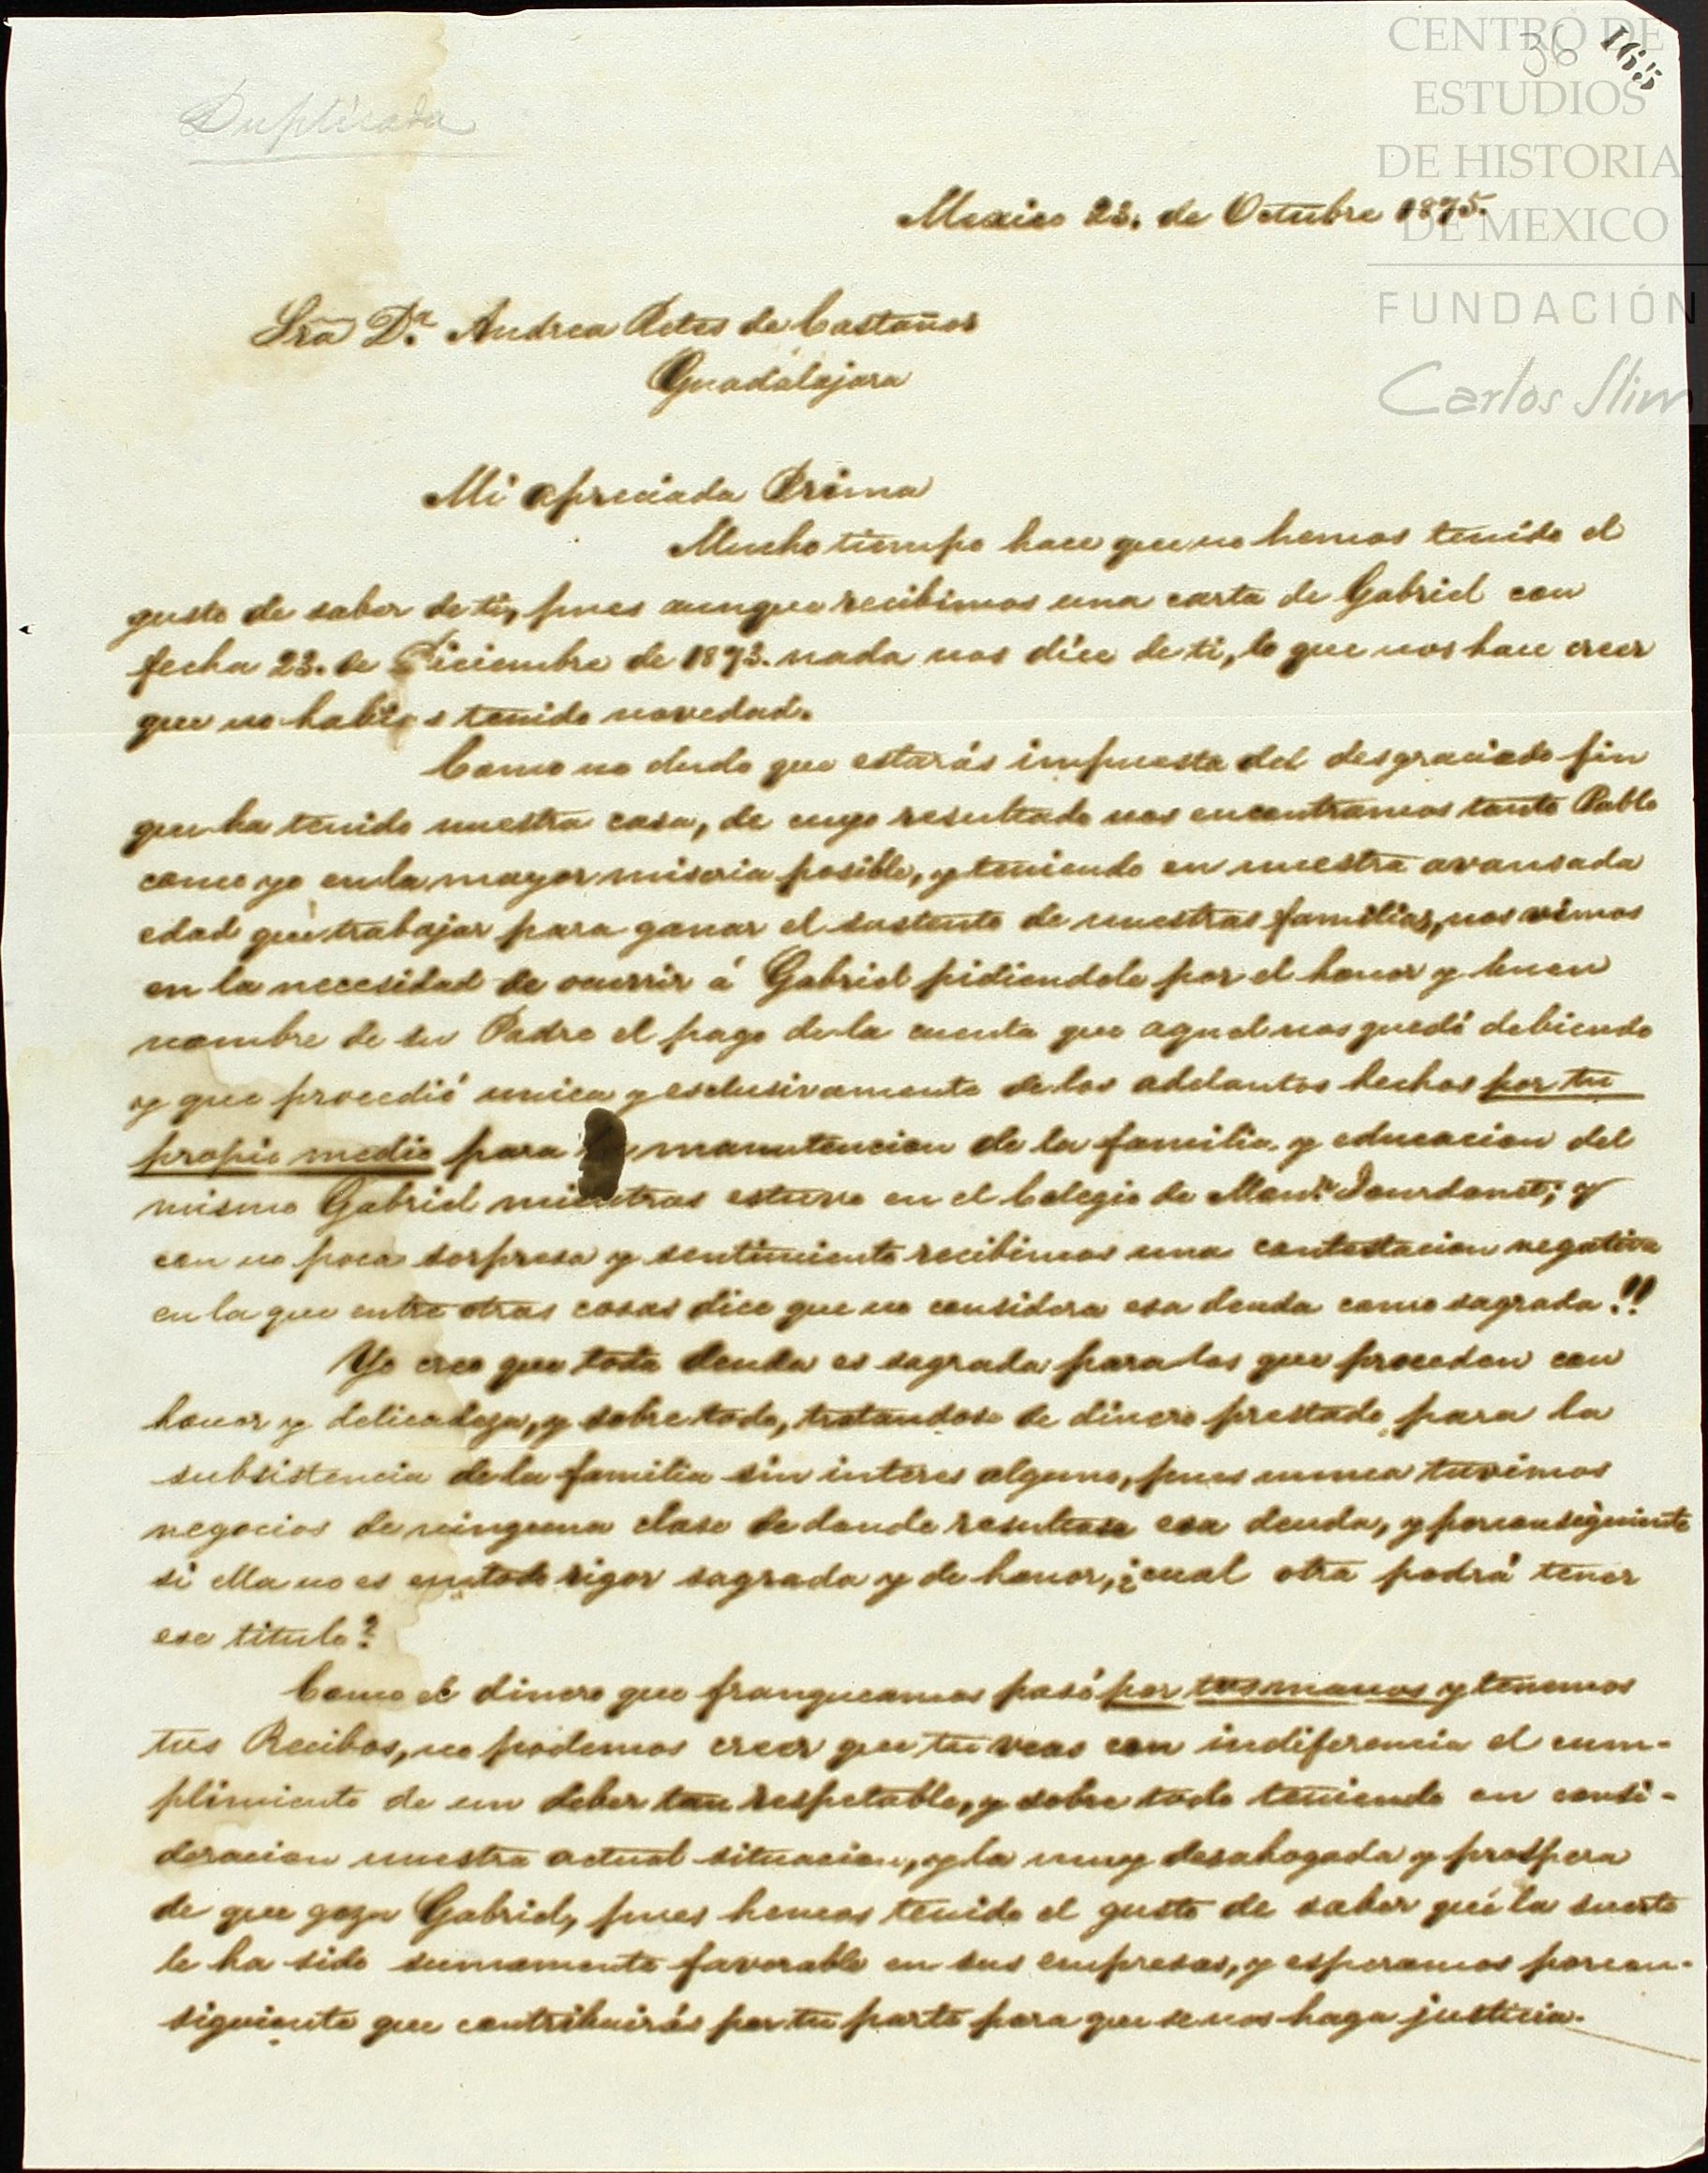 CENTRO DE
ESTUDIOS
DE HISTORIA
DE MEXICO
FUNDACIÓN
Carlos Slim
36 165
Duplicada
Mexico 23. de Octubre 1875.
Sra Dª. Andrea Retes de Castaños
Guadalajara
Mi apreciada Prima
Mucho tiempo hace que no hemos tenido el
gusto de saber de ti, pues aunque recibimos una carta de Gabriel con
fecha 23. de Diciembre de 1873. nada nos dice de ti, lo que nos hace creer
que no habias tenido novedad.
Como no dudo que estarás impuesta del desgraciado fin
que ha tenido nuestra casa, de cuyo resultado nos encontramos tanto Pablo
como yo en la mayor miseria posible, y teniendo en nuestra avansada
edad que trabajar para ganar el sustento de nuestras familias, nos vimos
en la necesidad de ocurrir á Gabriel pidiendole por el honor y buen
nombre de su Padre el pago de la cuenta que aquel nos quedó debiendo
y que procedió unica y esclusivamente de los adelantos hechos por tu
propio medio para manutencion de la familia y educacion del
mismo Gabriel mientras estuvo en el Colegio de Monr. Jourdanet; y
con no poca sorpresa y sentimiento recibimos una contestacion negativa
en la que entre otras cosas dice que no considera esa deuda como sagrada!!
Yo creo que toda deuda es sagrada para los que proceden con
honor y delicadeza, y sobre todo, tratandose de dinero prestado para la
subsistencia de la familia sin interes alguno, pues nunca tuvimos
negocios de ninguna clase de donde resultase esa deuda, y porconsiguiente
si ella no es en todo rigor sagrada y de honor, ¿cual otra podrá tener
ese titulo?
Como el dinero que franqueamos pasó por tus manos y tenemos
tus Recibos, no podemos creer que tu veas con indiferencia el cum-
plimiento de un deber tan respetable, y sobre todo teniendo en consi-
deracion nuestra actual situacion, y la muy desahogada y prospera
de que goza Gabriel, pues hemos tenido el gusto de saber que la suerte
le ha sido sumamente favorable en sus empresas, y esperamos porcon-
siguiente que contribuirás por tu parte para que se nos haga justicia.